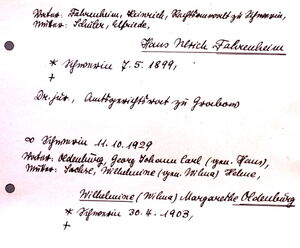 Vater: Fahrenheim, Heinrich, Rechtsanwalt zu Schwerin,
Mutter: Schüler, Elfriede
Hans Ulrich Fahrenheim
* Schwerin 7.5.1899,
+
Dr. jur., Amtsgerichtsrat zu Grabow
∞ Schwerin 11.10.1929
Vater: Oldenburg, Georg Johann Carl (gen. Hans),
Mutter: Sachse, Wilhelmine (gen. Wilma) Helene,
Wilhelmine (Wilma) Margarethe Oldenburg
* Schwerin 30.4.1903,
+